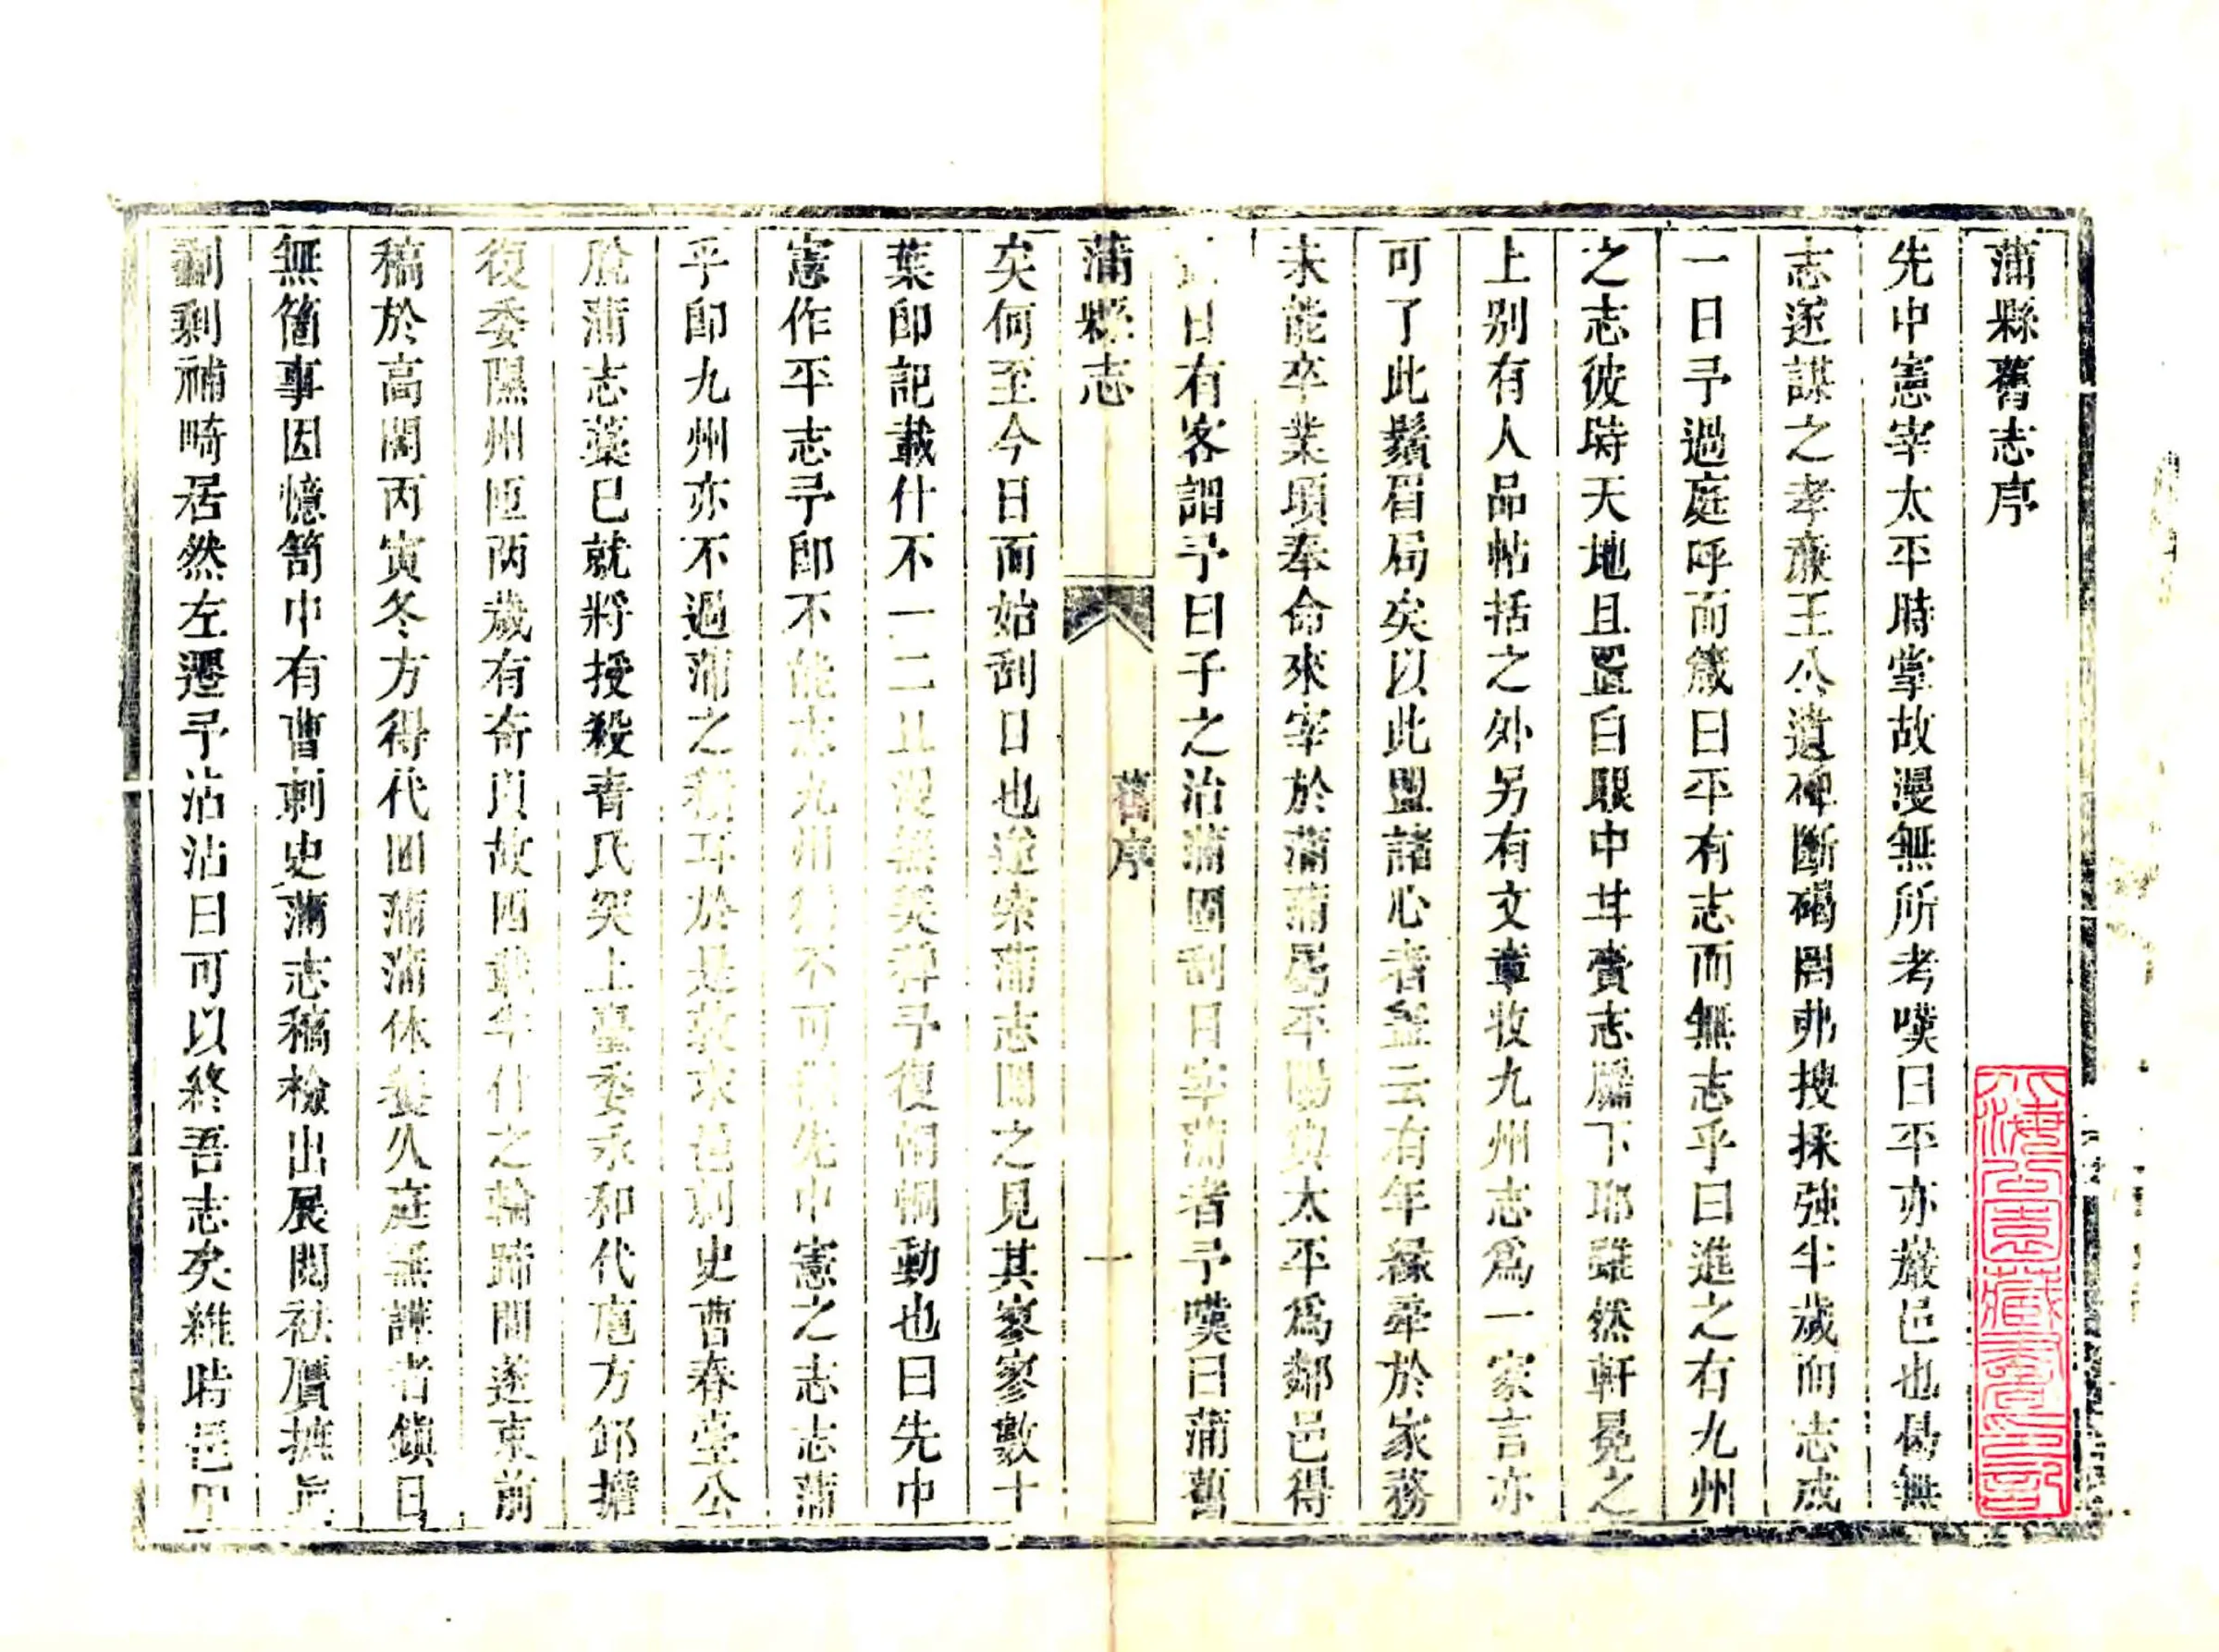 蒲縣舊志序
先中憲宰太平時掌故漫無所考嘆曰平亦巖邑也曷無
志遂謀之孝廉王公遺碑斷碣罔弗搜採強半歲而志成
一日予過庭呼而箴曰平有志而無志乎曰進之有九州
之志彼時天地且置白眼中甘賫志牖下耶雖然軒冕之
上别有人品帖括之外另有文章收九州志爲一家言亦
可了此鬚眉局矣以此盟諸心者盖云有年緣牽於家務
未能卒業頃奉命來宰於蒲蒲屬平陽與太平爲鄰邑得
日有客詔予曰子之治蒲固刮日宰蒲者予嘆曰蒲舊
蒲縣志
舊序
一
矣何至今日而始刮日也遂索蒲志閱之見其寥寥數十
葉即記載什不一二且漫無義予復恫恫動也曰先中
憲作平志予即不能志九州獨不可先中憲之志志蒲
乎即九州亦不過蒲之積耳於是敦求邑刺史曹春臺公
脫蒲志藁已就將授殺青氏突上臺委永和代庖方卸擔
復委隰州匝两歲有奇以故四載半什之輪蹄間遂束前
稿於高閣丙寅冬方得代囬蒲蒲休養久庭無譁者鎮日
無箇事因憶笥中有曹刺史蒲志稿檢出展閱祛贋摭眞
劃剩補畸居然左遷予沾沾曰可以終吾志矣維時邑甲